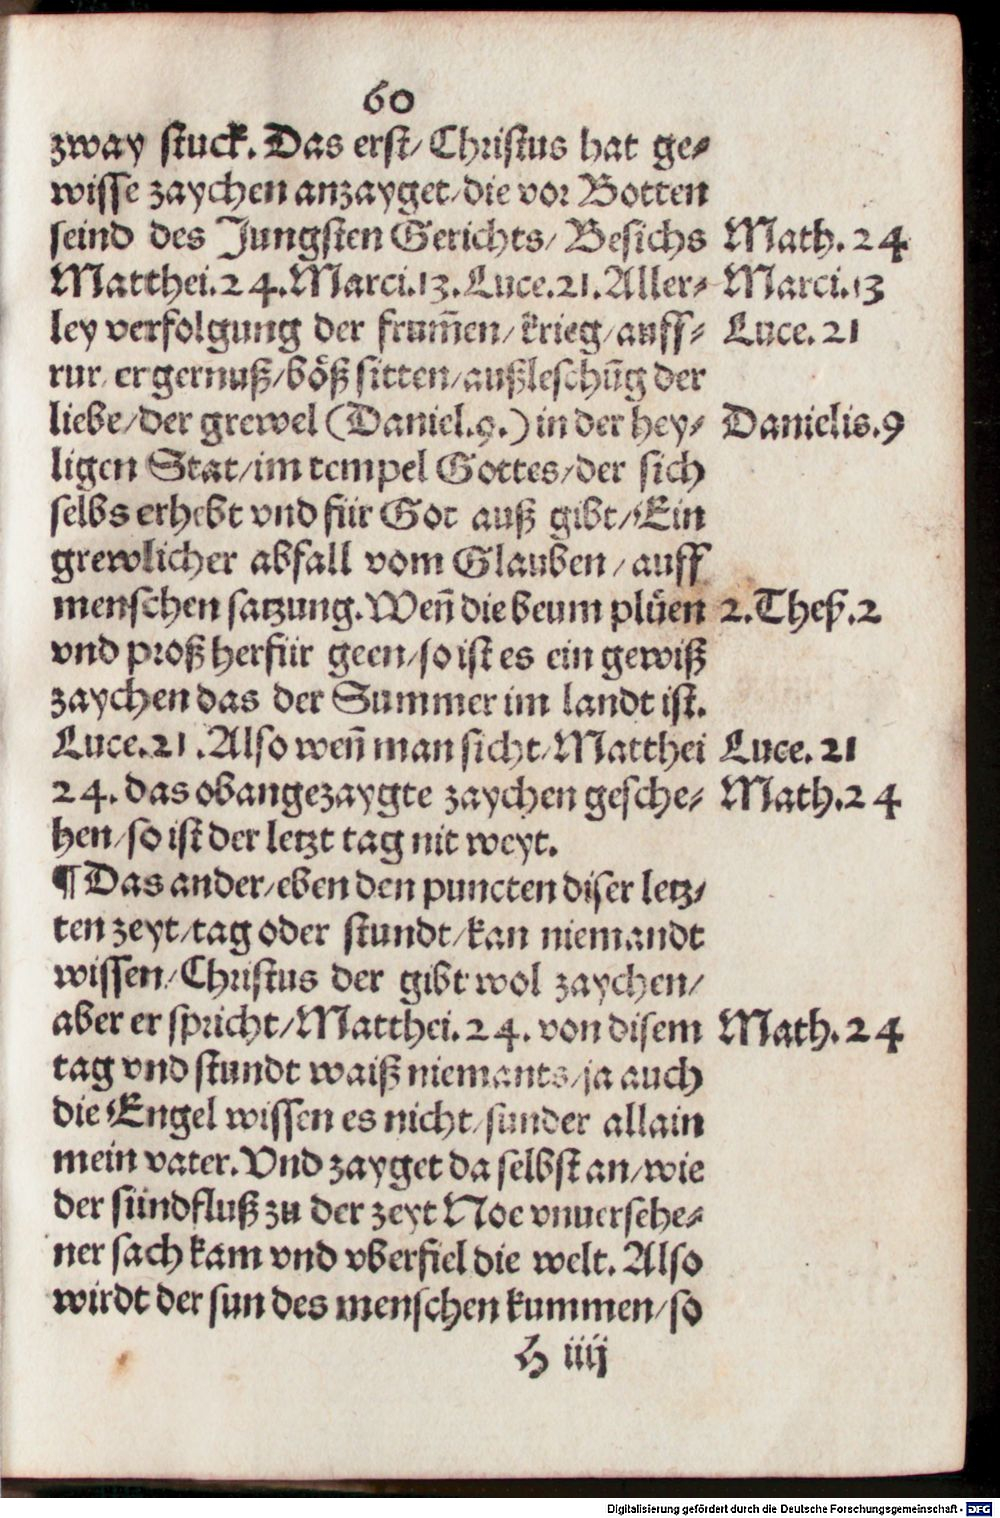 60
zway stuck. Das erst/ Christus hat ge⸗
wisse zaychen anzayget/ die vor Botten
seind des Jungsten Gerichts/ Besichs Math. 24
Matthei. 24. Marci. 13. Luce. 21. Aller⸗ Marci. 13
ley verfolgung der frum̃en/ krieg/ auff⸗ Luce. 21
rur/ ergernuß/ böß sitten/ außleschũg der
liebe/ der grewel (Daniel. 9.) in der hey⸗ Danielis. 9
ligen Stat/ im tempel Gottes/ der sich
selbs erhebt vnd für Got auß gibt/ Ein
grewlicher abfall vom Glauben/ auff
menschen satzung. Weñ die beum plüen 2. Thess. 2
vnd proß herfür geen/ so ist es ein gewiß
zaychen das der Summer im landt ist.
Luce. 21. Also weñ man sicht/ Matthei Luce. 21
24. das obangezaygte zaychen gesche⸗ Math. 24
hen/ so ist der letzt tag nit weyt.
¶ Das ander/ eben den puncten diser letz⸗
ten zeyt/ tag oder stundt/ kan niemandt
wissen/ Christus der gibt wol zaychen/
aber er spricht/ Matthei. 24. von disem Math. 24
tag vnd stundt waiß niemants/ ja auch
die Engel wissen es nicht/ sunder allain
mein vater. Vnd zayget da selbst an/ wie
der sündfluß zu der zeyt Noe vnuersehe⸗
ner sach kam vnd vberfiel die welt. Also
wirdt der sun des menschen kummen/ so
H iiij
Digitalisierung gefördert durch die Deutsche Forschungsgemeinschaft - DFG